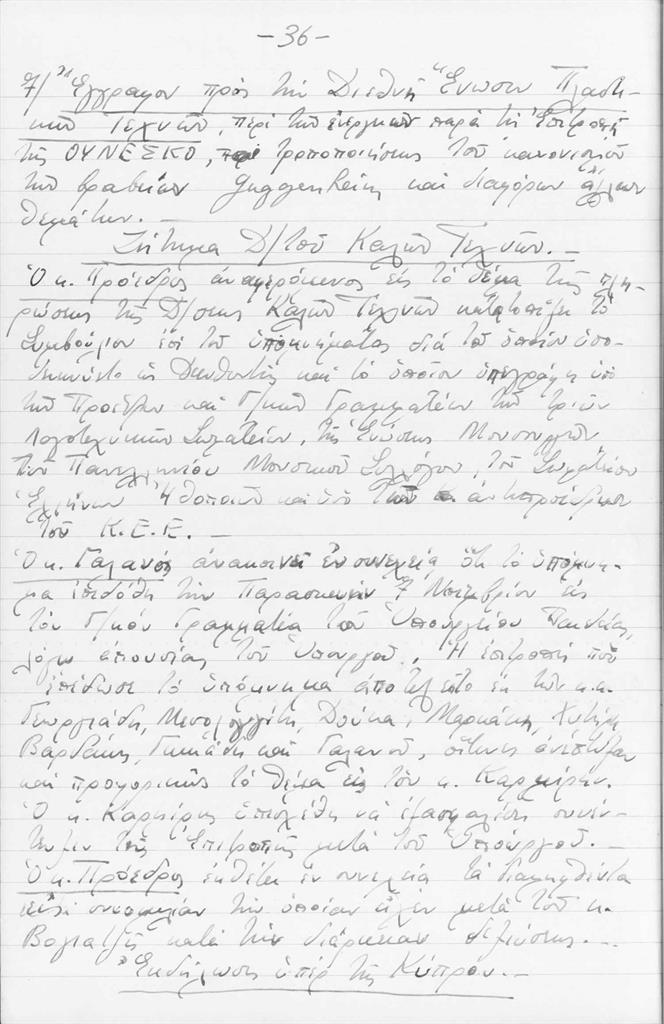 -36-
7/ Ἔγγραφον πρὸς τὴν Διεθνῆ Ἕνωσιν Πλαστι-
κῶν Τεχνῶν, περὶ τῶν ἐνεργειῶν παρὰ τῇ Ἐπιτροπῇ
τῆς ΟΥΝΕΣΚΟ, περὶ τροποποιήσεως τοῦ κανονισμοῦ
τῶν βραβείων Guggenheim καὶ διαφόρων ἄλλων
θεμάτων. -
Ζήτημα Δ/τοῦ Καλῶν Τεχνῶν. -
Ὁ κ. Πρόεδρος ἀναφερόμενος εἰς τὸ θέμα τῆς πλη-
ρώσεως τῆς Δ/σεως Καλῶν Τεχνῶν κατατοπίζει τὸ
Συμβούλιον ἐπὶ τοῦ ὑπομνήματος διὰ τοῦ ὁποίου ὑπο-
δεικνύετο ὡς Διευθυντὴς καὶ τὸ ὁποῖον ὑπεγράφη ὑπὸ
τῶν Προέδρων καὶ Γ/κῶν Γραμματέων τῶν τριῶν
Λογοτεχνικῶν Σωματείων, τῆς Ἑνώσεως Μουσουργῶν
τοῦ Πανελληνίου Μουσικοῦ Συλλόγου, τοῦ Σωματείου
Ἑλλήνων Ἠθοποιῶν καὶ ὑπὸ τῶν κ. ἀντιπροέδρων
τοῦ Κ.Ε.Ε. -
Ὁ κ. Γαλανὸς ἀνακοινεῖ ἐν συνεχείᾳ ὅτι τὸ ὑπόμνη-
μα ἐπεδόθη τὴν Παρασκευὴν 7 Νοεμβρίου εἰς
τὸν Γ/κὸν Γραμματέα τοῦ Ὑπουργείου Παιδείας,
λόγῳ ἀπουσίας τοῦ Ὑπουργοῦ. Ἡ ἐπιτροπὴ ποὺ
ἐπέδωσε τὸ ὑπόμνημα ἀπετελεῖτο ἐκ τῶν κ.κ.
Γεωργιάδη, Μεσολογγίτη, Δούκα, Μαρκάκη,
Βαρδάκη, καὶ Γαλανοῦ, οἵτινες ἀνέπτυξαν
καὶ προφορικῶς τὸ θέμα εἰς τὸν κ. Καρμίρην.
Ὁ κ. Καρμίρης ὑπεσχέθη νὰ ἐξασφαλίσῃ συνέν-
τευξιν τῆς Ἐπιτροπῆς μετὰ τοῦ Ὑπουργοῦ. -
Ὁ κ. Πρόεδρος ἐκθέτει ἐν συνεχείᾳ τὰ διαμειφθέντα
συνομιλίαν τὴν ὁποίαν εἶχεν μετὰ τοῦ κ.
Βογιατζῆ κατὰ τὴν διάρκειαν δεξιώσεως. -
Ἐκδήλωσις ὑπὲρ τῆς Κύπρου. -